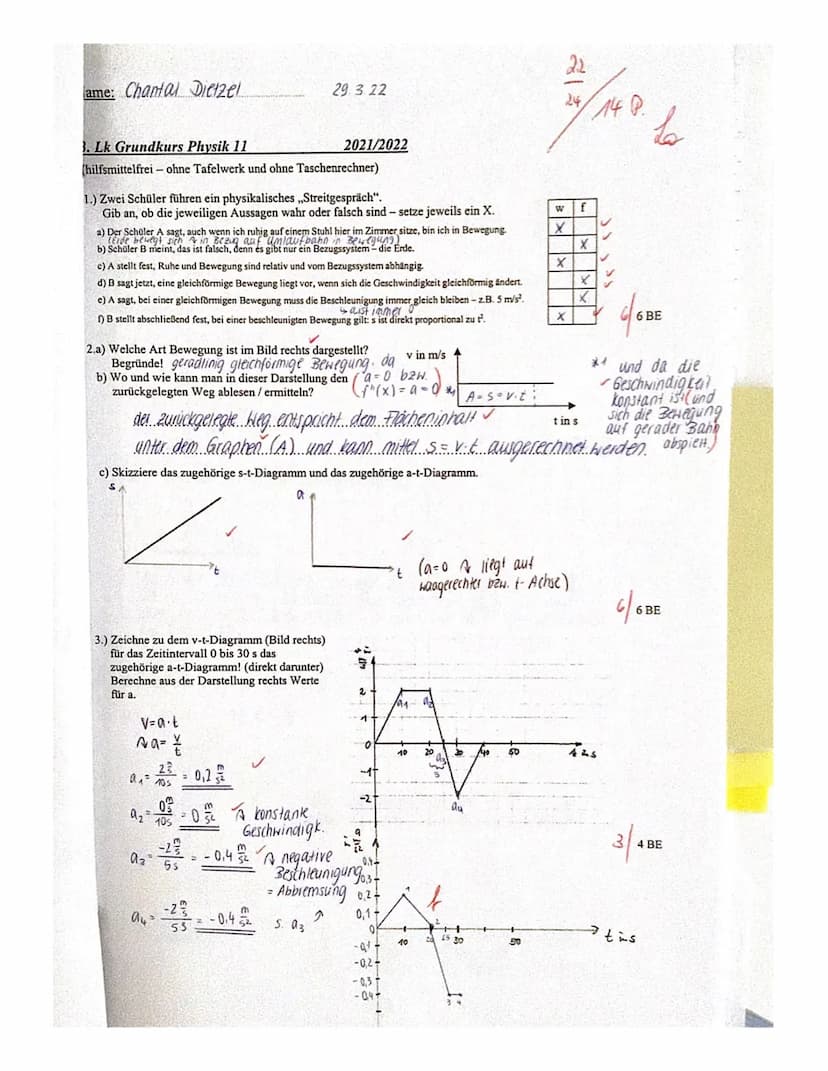 ame: Chantal Dietzel 29.3.22
22
24
/14 P.
3. Lk Grundkurs Physik 11 2021/2022
(hilfsmittelfrei – ohne Tafelwerk und ohne Taschenrechner)
1.) Zwei Schüler führen ein physikalisches „Streitgespräch“.
Gib an, ob die jeweiligen Aussagen wahr oder falsch sind – setze jeweils ein X.
w f
a) Der Schüler A sagt, auch wenn ich ruhig auf einem Stuhl hier im Zimmer sitze, bin ich in Bewegung. X
(Erde bewegt sich in Bezug auf Umlaufbahn in Bewegung)
b) Schüler B meint, das ist falsch, denn es gibt nur ein Bezugssystem – die Erde. X
c) A stellt fest, Ruhe und Bewegung sind relativ und vom Bezugssystem abhängig. X
d) B sagt jetzt, eine gleichförmige Bewegung liegt vor, wenn sich die Geschwindigkeit gleichförmig ändert. X
e) A sagt, bei einer gleichförmigen Bewegung muss die Beschleunigung immer gleich bleiben – z.B. 5 m/s². X
↳ a ist immer 0
f) B stellt abschließend fest, bei einer beschleunigten Bewegung gilt: s ist direkt proportional zu t². X
6/ 6 BE
2.a) Welche Art Bewegung ist im Bild rechts dargestellt?
Begründe! geradlinig gleichförmige Bewegung, da
(a=0 bzw.
f''(x) = a = 0 *1
b) Wo und wie kann man in dieser Darstellung den
zurückgelegten Weg ablesen / ermitteln?
v in m/s
A = s = v·t
t in s
*1 und da die
Geschwindigkeit
konstant ist (und
sich die Bewegung
auf gerader Bahn
abspielt.)
der zurückgelegte Weg entspricht dem Flächeninhalt
unter dem Graphen (A) und kann mittel s = v·t ausgerechnet werden.
c) Skizziere das zugehörige s-t-Diagramm und das zugehörige a-t-Diagramm.
s
t
a
t
(a=0 liegt auf
waagerechter bzw. t-Achse)
6/ 6 BE
3.) Zeichne zu dem v-t-Diagramm (Bild rechts)
für das Zeitintervall 0 bis 30 s das
zugehörige a-t-Diagramm! (direkt darunter)
Berechne aus der Darstellung rechts Werte
für a.
2
1
0
-1
-2
10 20 30 40 50 t in s
a1 a2 a3 a4
5
V=a·t
a= v/t
a1= 2 m/s / 10s = 0,2 m/s²
a2= 0 m/s / 10s = 0 m/s² konstante
Geschwindigk.
a3= -2 m/s / 5s = -0,4 m/s² negative
Beschleunigung
= Abbremsung
a4= -2 m/s / 5s = -0,4 m/s² s. a3
3/ 4 BE
0,4
0,3
0,2
0,1
0
-0,1
-0,2
-0,3
-0,4
10 20 25 30 50 t in s
1 2 3 4
f